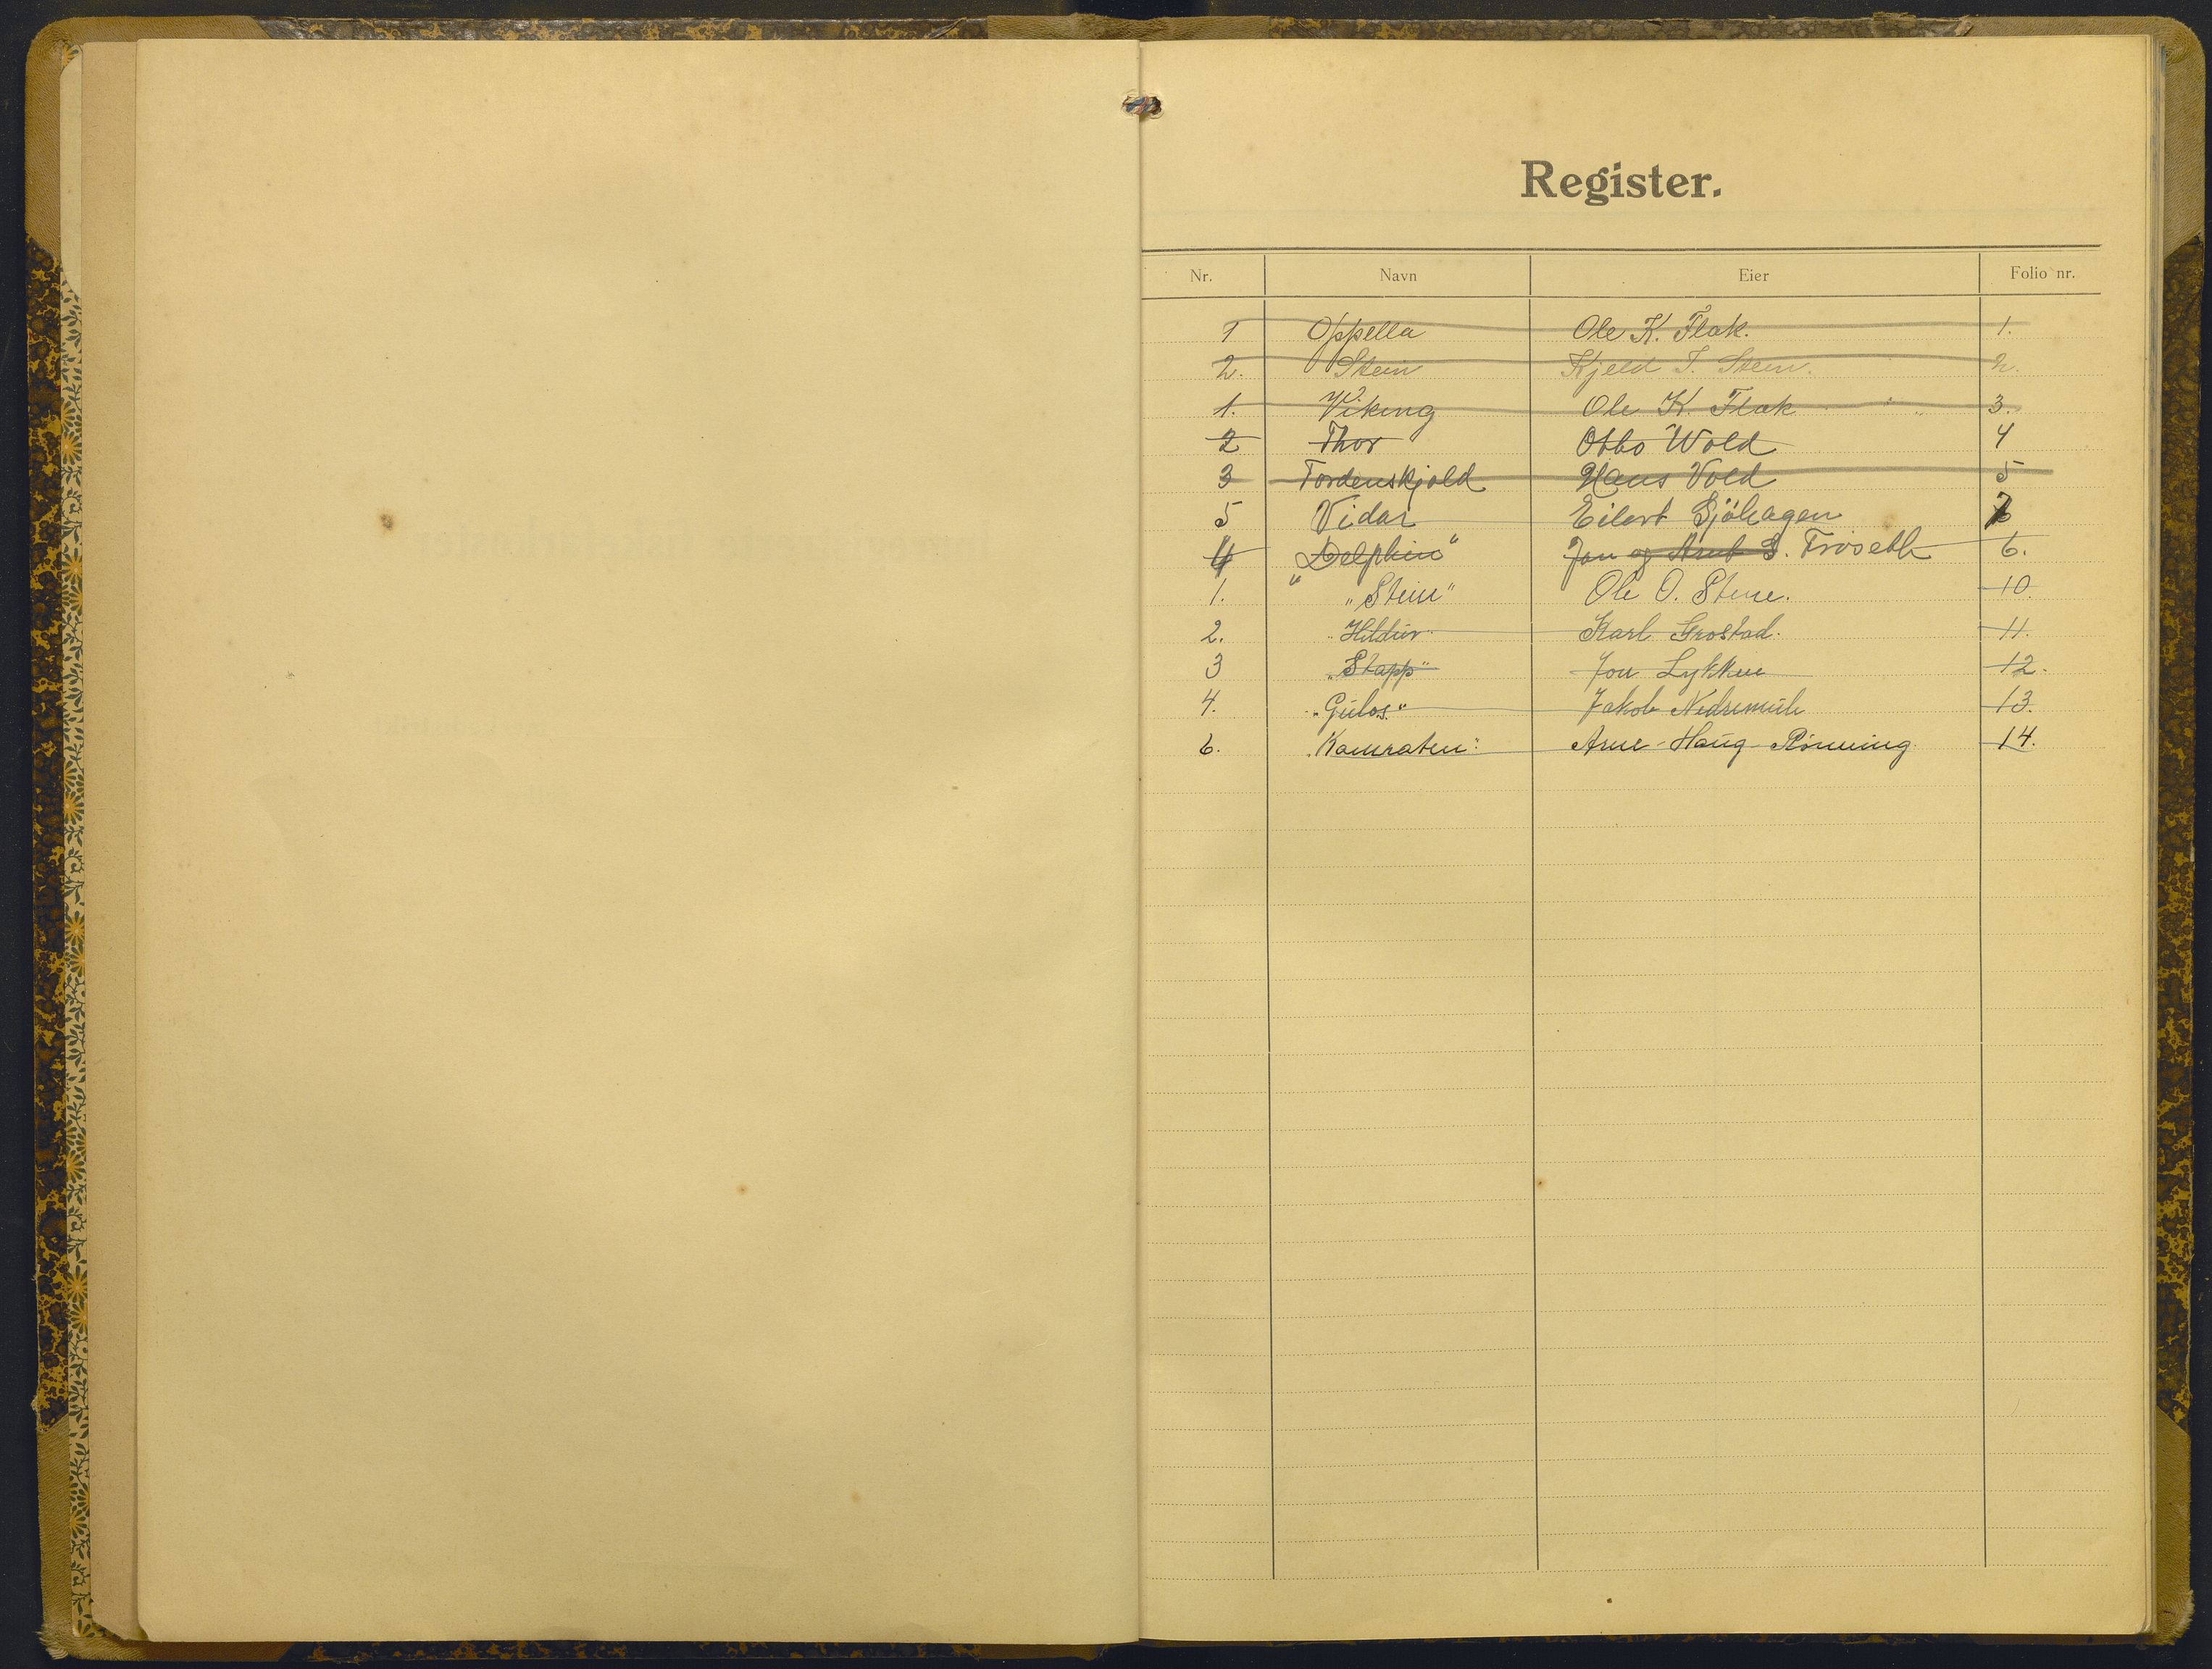 Register.
Nr. Navn Eier Folio nr.
1 Oppella Ole K. Flak. 1.
2. Stein Kjeld T. Stein. 2.
1. Viking Ole K. Flak 3.
2 Thor Otto Wold 4
3 Tordenskjold Hans Vold 5
5 Vidar Eilert Sjöhagen 7
4 "Delphin" Jon og Arnt S. Fröseth 6.
1. "Stein" Ole O. Stene. 10.
2. "Hildur" Karl Grostad. 11.
3 "Stapp" Jon Lykken 12.
4. "Gulos" Jakob 13.
6. "Kamraten" Arne Haug Rönning 14.